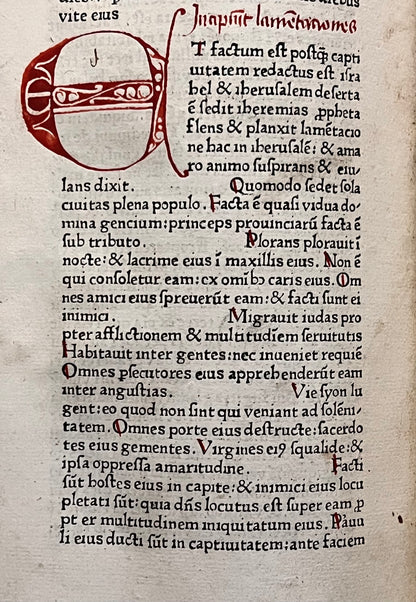 vite eius
Incipiunt lamētaciones
ET factum est postq̃ capti
uitatem redactus est isra
hel & iherusalem deserta
ē sedit iheremias ꝓpheta
flens & planxit lamētacio
ne hac in iherusalē: & ama
ro animo suspirans & eiu
lans dixit. Quomodo sedet sola
ciuitas plena populo. Facta ē quasi vidua do⸗
mina gencium: princeps prouinciarū facta ē
sub tributo. Plorans plorauit ī
nocte: & lacrime eius ī maxillis eius. Non ē
qui consoletur eam: ex omībꝫ caris eius. Om
nes amici eius spreuerūt eam: & facti sunt ei
inimici. Migrauit iudas pro
pter afflictionem & multitudīem seruitutis
Habitauit inter gentes: nec inueniet requiē
Omnes ꝑsecutores eius apprehenderūt eam
inter angustias. Vie syon lu
gent: eo quod non sint qui veniant ad solēni⸗
tatem. Omnes porte eius destructe: sacerdo
tes eius gementes. Virgines eiꝰ squalide: &
ipsa oppressa amaritudine. Facti
sūt hostes eius in capite: & inimici eius locu
pletati sūt: quia dn̄s locutus est super eam ꝓ
pter multitudinem iniquitatum eius. Paruu
li eius ducti sūt in captiuitatem: ante faciem